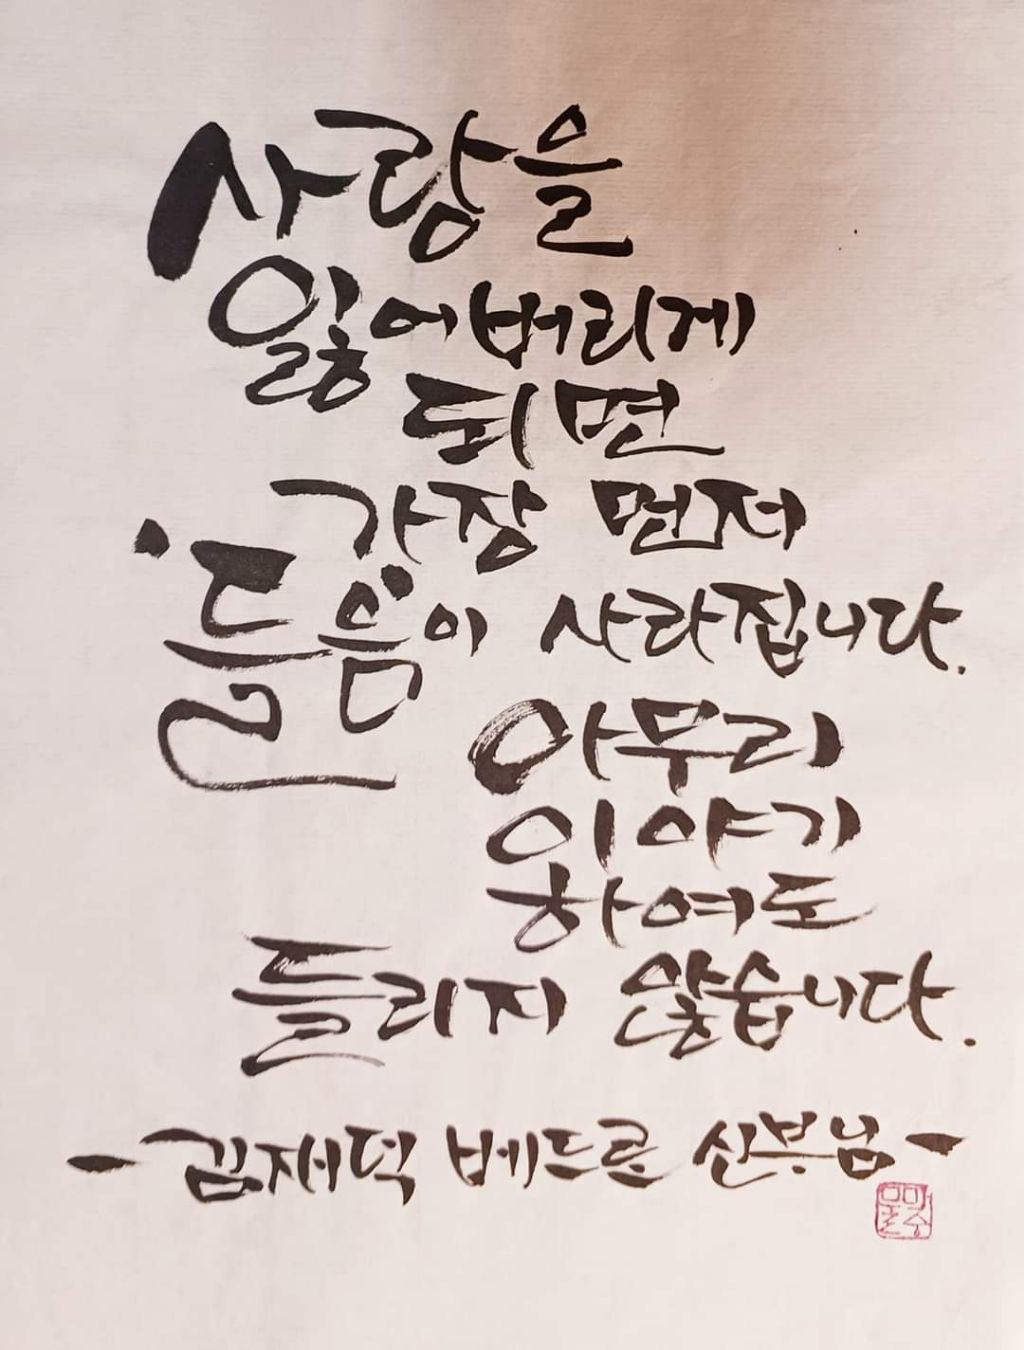 사랑을
잃어버리게
되면
가장 먼저
들음이 사라집니다.
아무리
이야기
하여도
들리지 않습니다.
-김재덕 베드로 신부님-